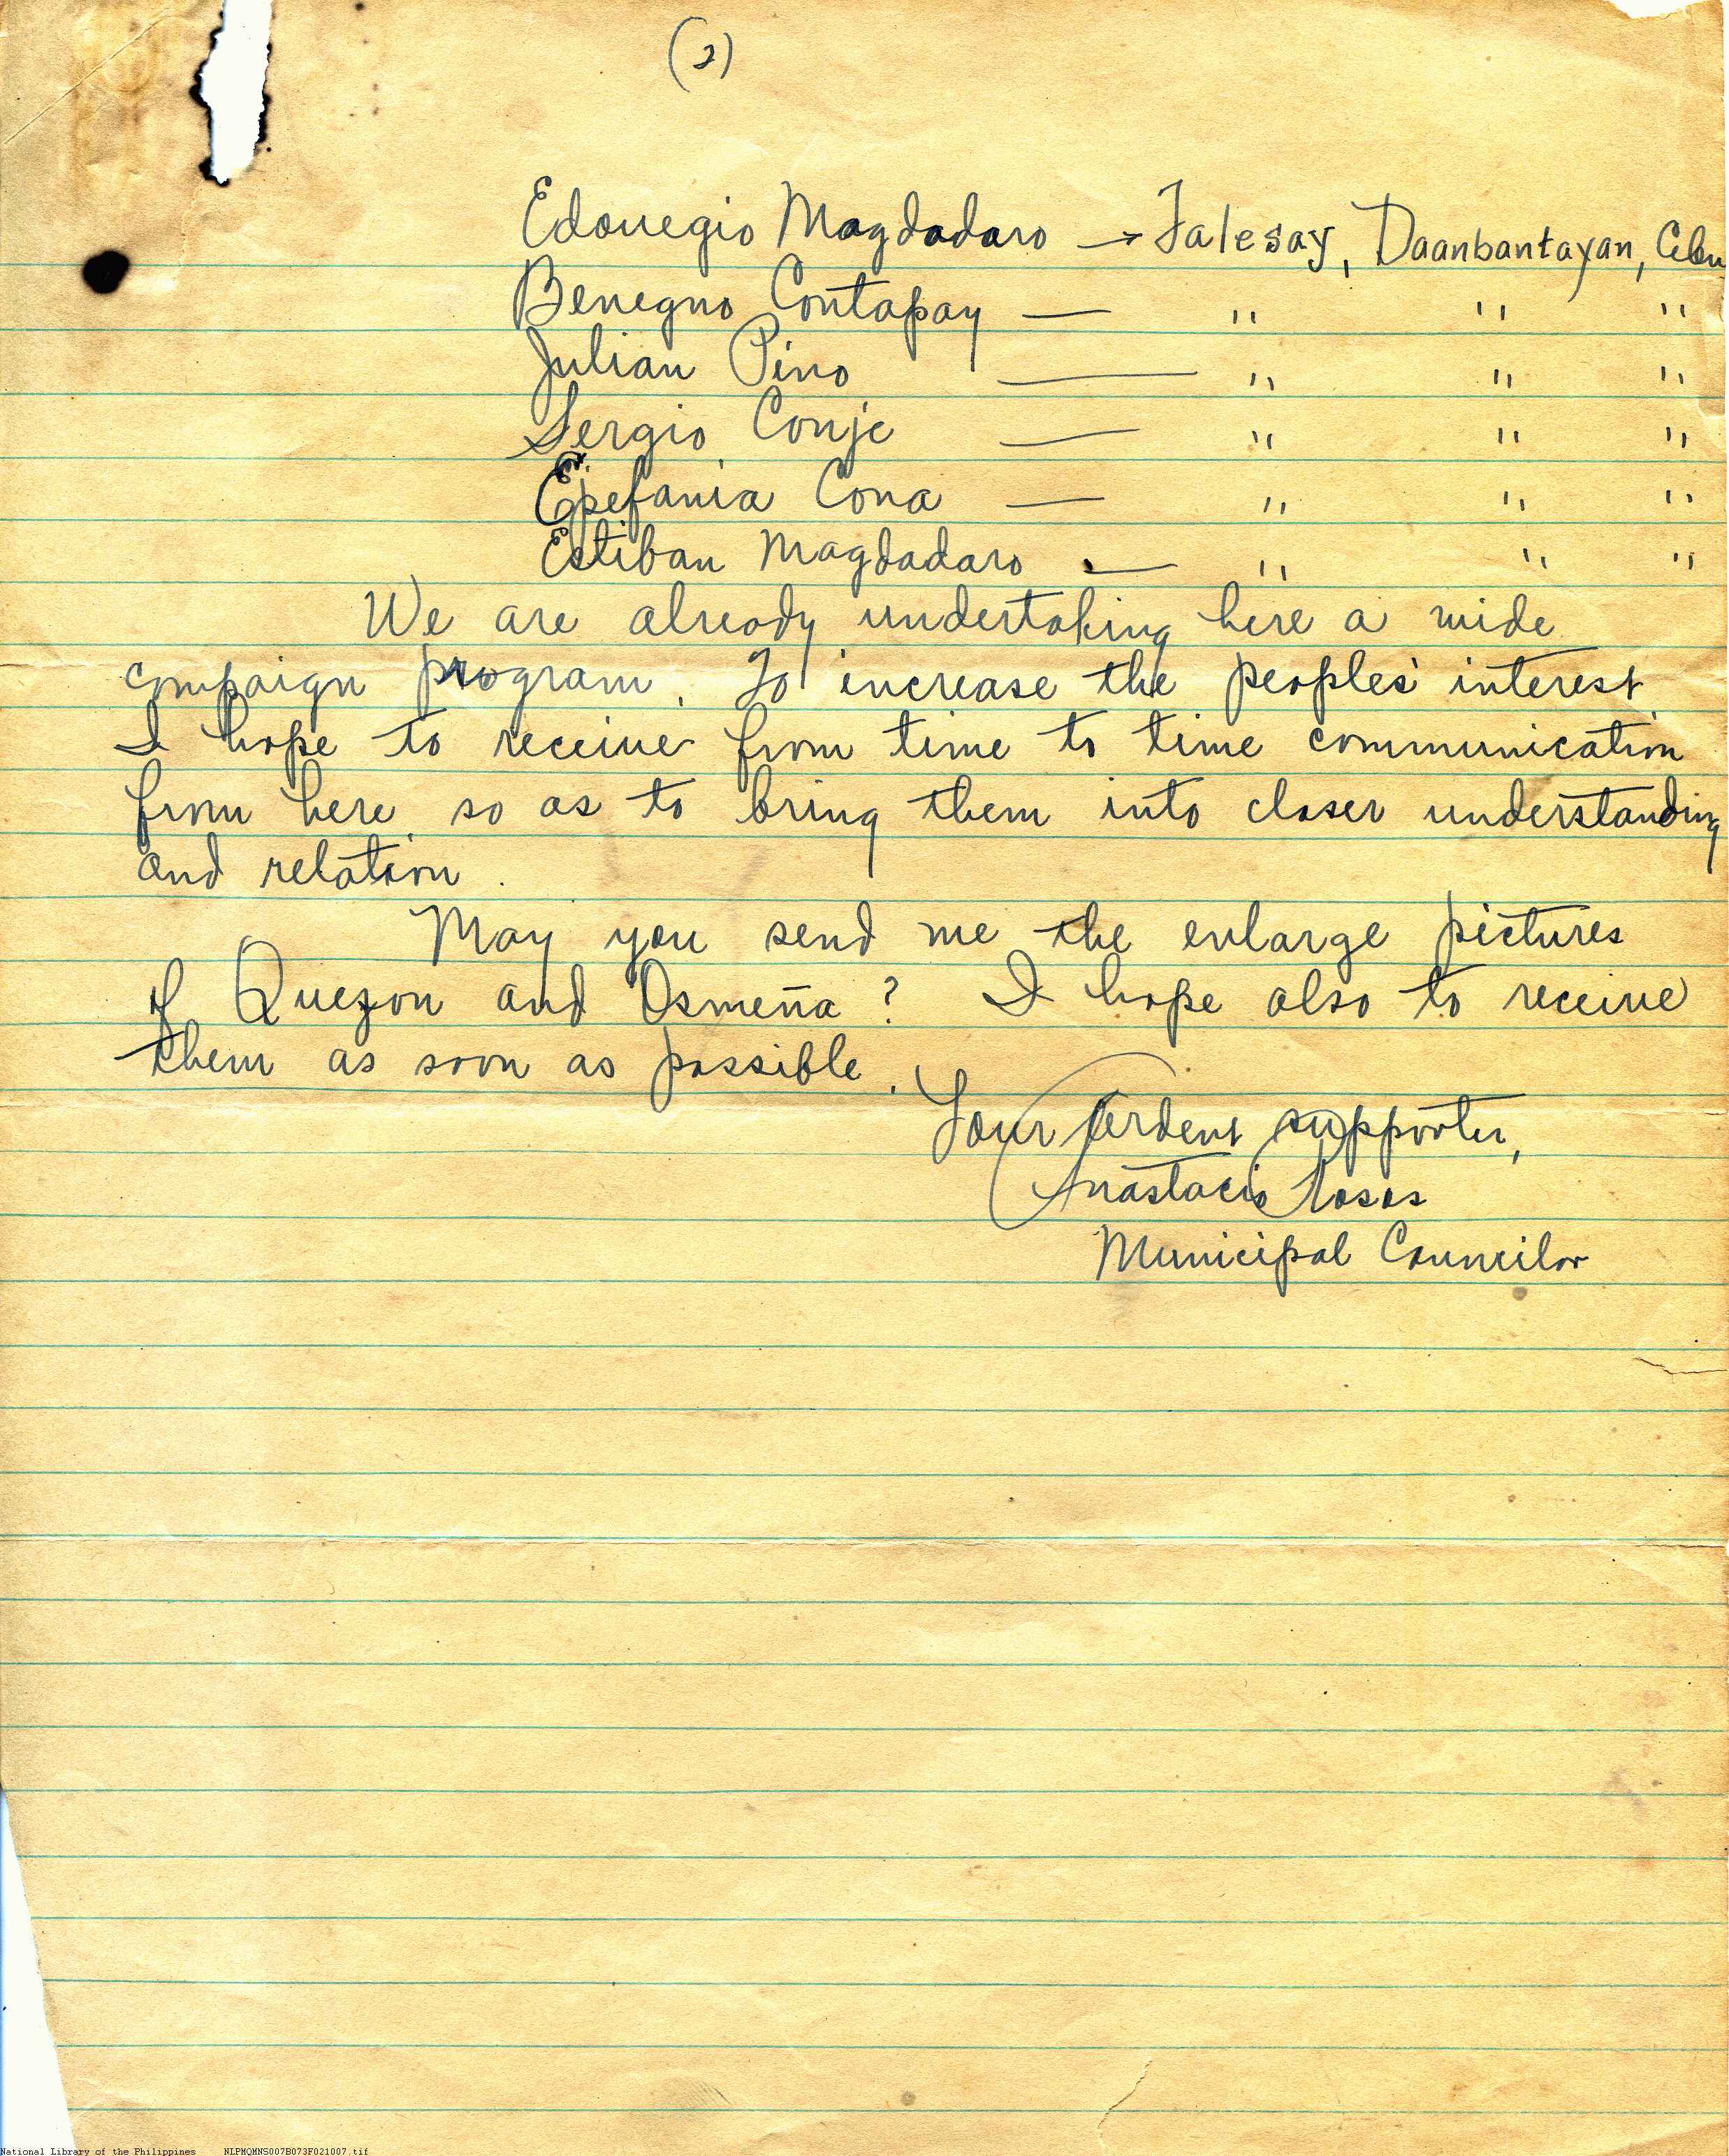 (2)
Edouegio Magdadaro → Talesay, Daanbantayan, Cebu
Benegno Contapay — " " "
Julian Pino — " " "
Sergio Conje — " " "
Epefania Cona — " " "
Estiban Magdadaro — " " "
We are already undertaking here a wide
campaign program. To increase the peoples' interest
I hope to receive from time to time communication
from here so as to bring them into closer understanding
and relation.
May you send me the enlarge pictures
of Quezon and Osmeña? I hope also to receive
them as soon as possible.
Your ardent supporter,
Anastacio
Municipal Councilor
National Library of the Philippines NLPMQMNS007B073F021007.tif